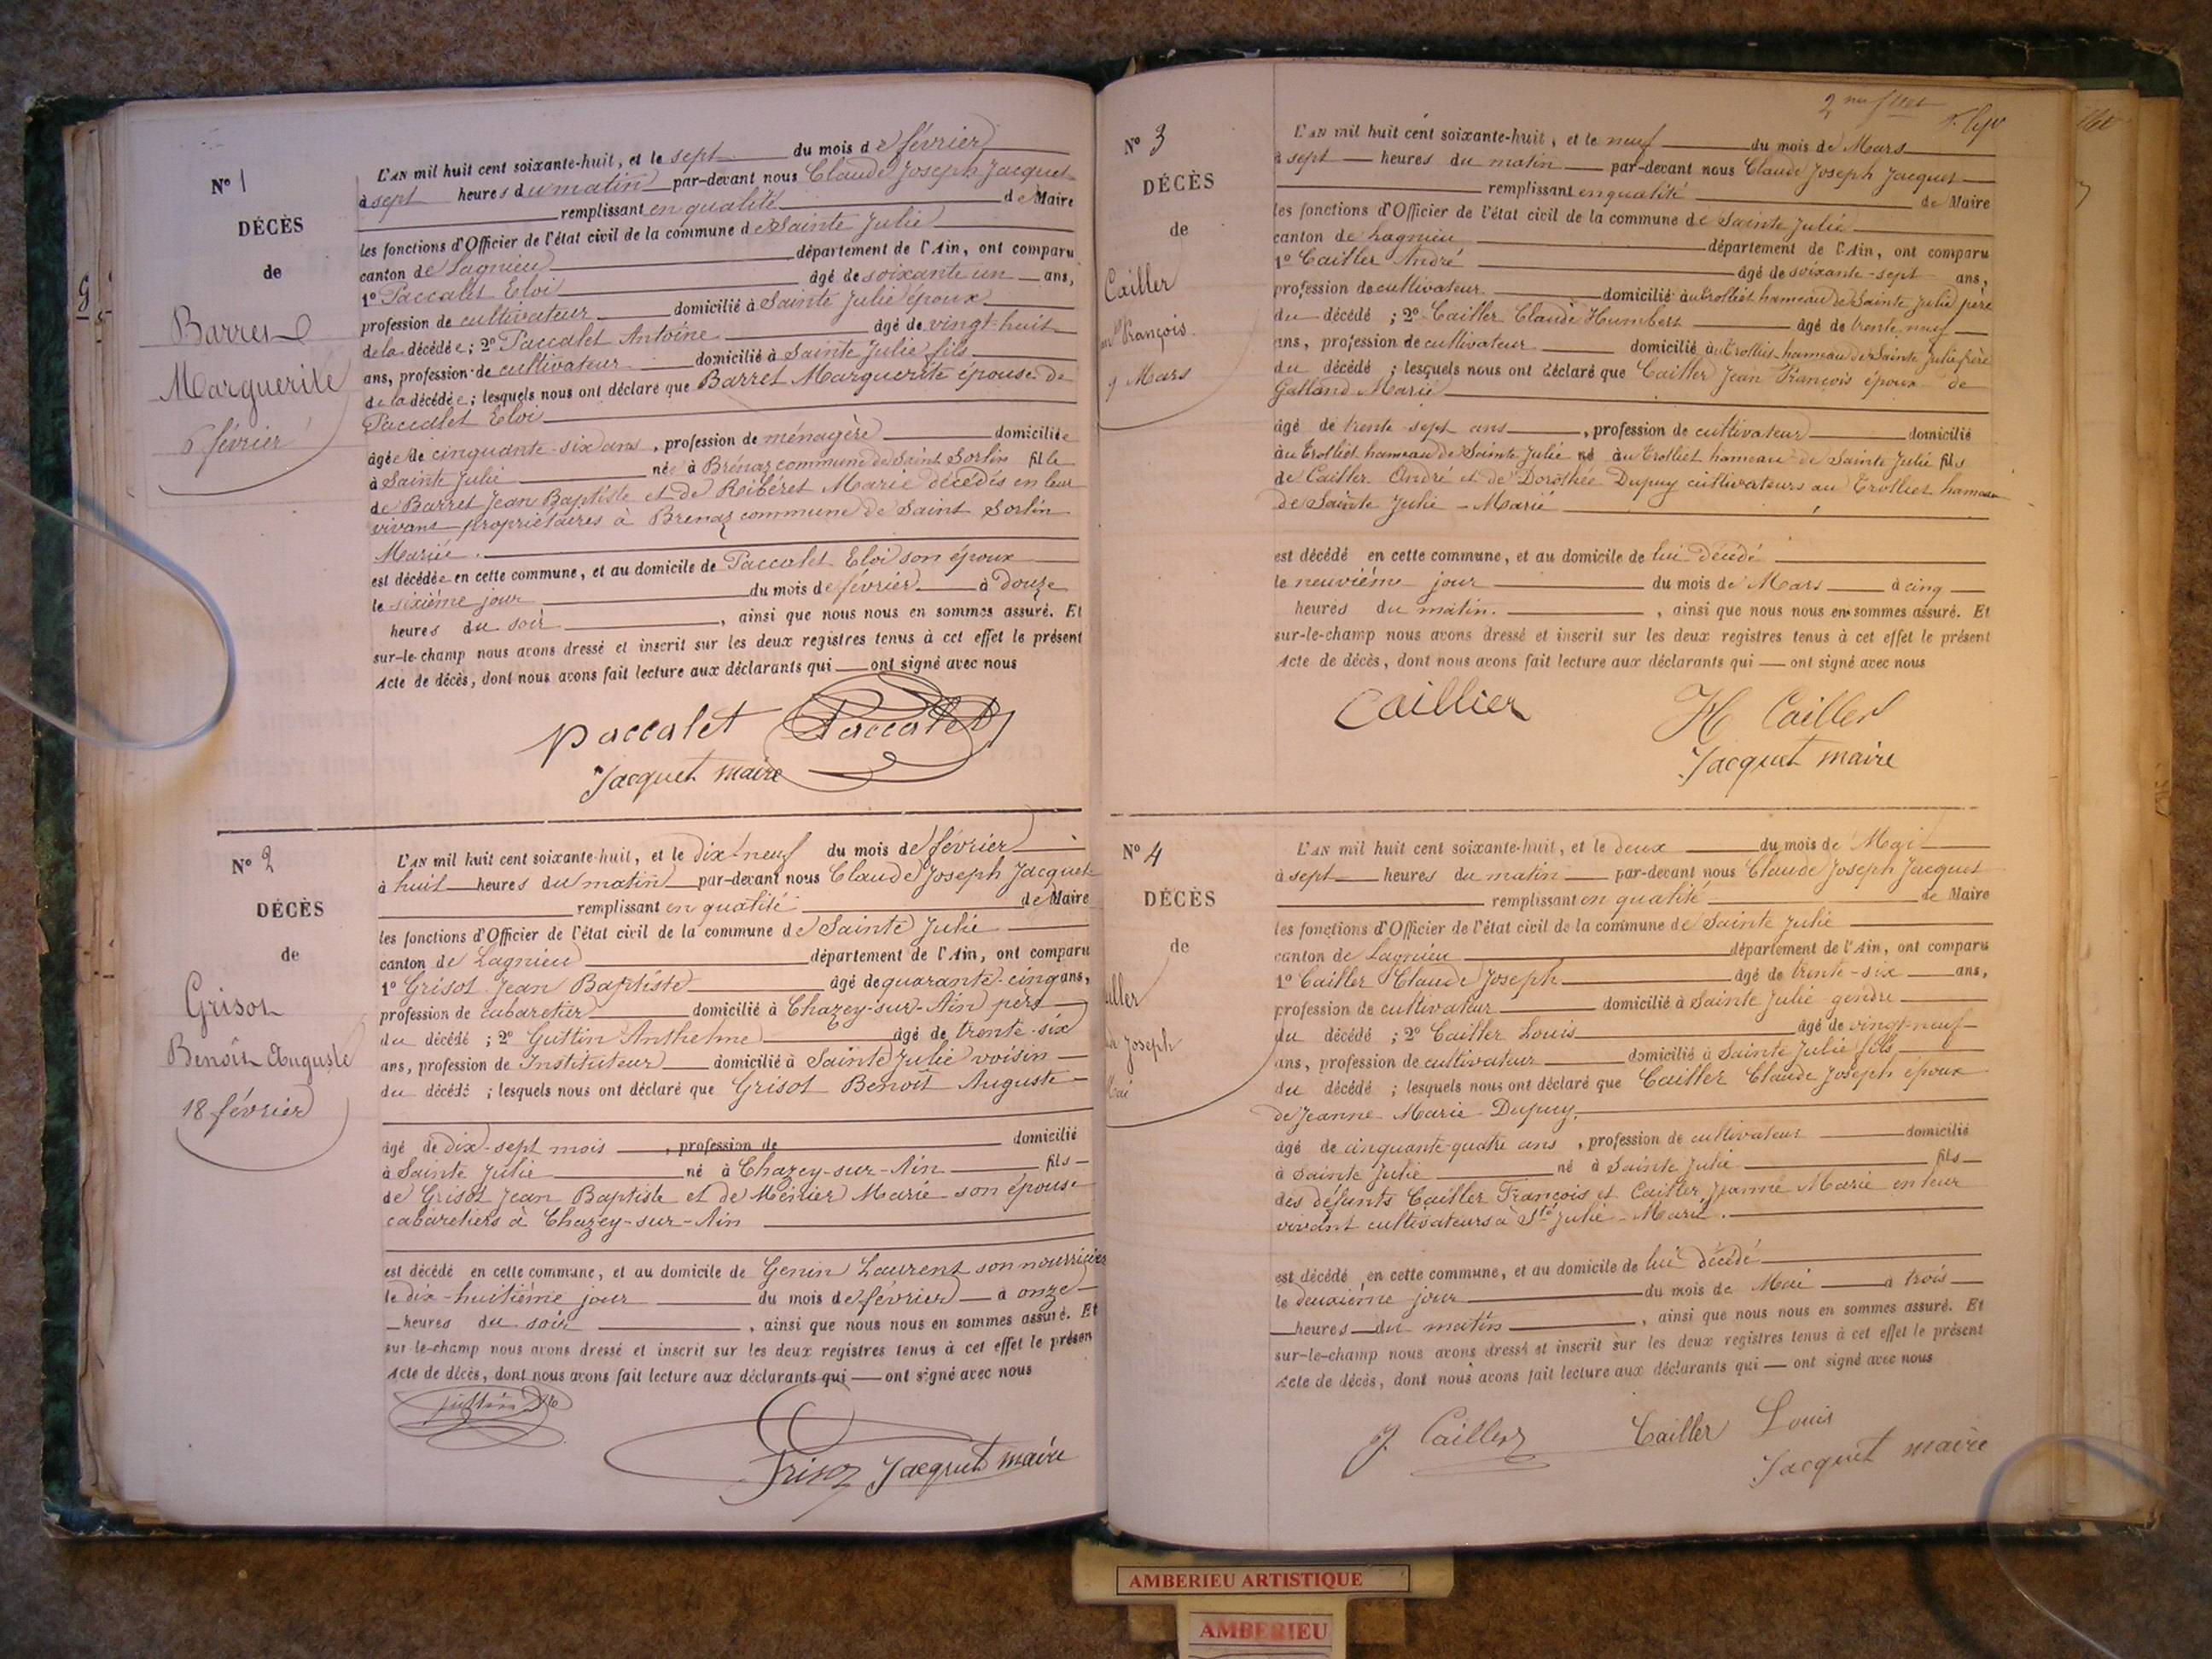 N° 1
DÉCÈS
de
Barret
Marguerite
6 février
L'AN mil huit cent soixante-huit, et le sept du mois de février
à sept heures du matin par-devant nous Claude Joseph Jacquet
remplissant en qualité de Maire
les fonctions d'Officier de l'état civil de la commune de Sainte Julie
canton de Lagnieu département de l'Ain, ont comparu
1° Paccalet Eloi âgé de soixante un ans,
profession de cultivateur domicilié à Sainte Julie époux
de la décédée ; 2° Paccalet Antoine âgé de vingt-huit
ans, profession de cultivateur domicilié à Sainte Julie fils
de la décédée ; lesquels nous ont déclaré que Barret Marguerite épouse de
Paccalet Eloi
âgée de cinquante-six ans, profession de ménagère domiciliée
à Sainte Julie née à Brénaz commune de Saint Sorlin fille
de Barret Jean Baptiste et de Ribéret Marie décédés en leur
vivans propriétaires à Brenaz commune de Saint Sorlin
Mariée.
est décédée en cette commune, et au domicile de Paccalet Eloi son époux
le sixième jour du mois de février à douze
heures du soir, ainsi que nous nous en sommes assuré. Et
sur-le-champ nous avons dressé et inscrit sur les deux registres tenus à cet effet le présent
Acte de décès, dont nous avons fait lecture aux déclarants qui ont signé avec nous
Paccalet Paccalet
Jacquet maire
N° 2
DÉCÈS
de
Grisot
Benoît Auguste
18 février
L'AN mil huit cent soixante-huit, et le dix-neuf du mois de février
à huit heures du matin par-devant nous Claude Joseph Jacquet
remplissant en qualité de Maire
les fonctions d'Officier de l'état civil de la commune de Sainte Julie
canton de Lagnieu département de l'Ain, ont comparu
1° Grisot Jean Baptiste âgé de quarante-cinq ans,
profession de cabaretier domicilié à Chazey-sur-Ain père
du décédé ; 2° Guttin Anthelme âgé de trente-six
ans, profession de Instituteur domicilié à Sainte Julie voisin
du décédé ; lesquels nous ont déclaré que Grisot Benoît Auguste
âgé de dix-sept mois, profession de domicilié
à Sainte Julie né à Chazey-sur-Ain fils
de Grisot Jean Baptiste et de Ménier Marie son épouse
cabaretiers à Chazey-sur-Ain
est décédé en cette commune, et au domicile de Genin Laurent son nourricier
le dix-huitième jour du mois de février à onze
heures du soir, ainsi que nous nous en sommes assuré. Et
sur-le-champ nous avons dressé et inscrit sur les deux registres tenus à cet effet le présen
Acte de décès, dont nous avons fait lecture aux déclarants qui ont signé avec nous
Grisoz Jacquet maire
2me f
N° 3
DÉCÈS
de
Cailler
François
9 Mars
L'AN mil huit cent soixante-huit, et le neuf du mois de Mars
à sept heures du matin par-devant nous Claude Joseph Jacquet
remplissant en qualité de Maire
les fonctions d'Officier de l'état civil de la commune de Sainte Julie
canton de Lagnieu département de l'Ain, ont comparu
1° Cailler André âgé de soixante-sept ans,
profession de cultivateur domicilié au Trolliet hameau de Sainte Julie père
du décédé ; 2° Cailler Claude Humbert âgé de trente neuf
ans, profession de cultivateur domicilié au Trolliet hameau de Sainte Julie frère
du décédé ; lesquels nous ont déclaré que Cailler Jean François époux de
Galland Marie
âgé de trente-sept ans, profession de cultivateur domicilié
au Trolliet hameau de Sainte Julie né au Trolliet hameau de Sainte Julie fils
de Cailler André et de Dorothée Dupuy cultivateurs au Trolliet hameau
de Sainte Julie - Marié
est décédé en cette commune, et au domicile de lui décédé
le neuvième jour du mois de Mars à cinq
heures du matin., ainsi que nous nous en sommes assuré. Et
sur-le-champ nous avons dressé et inscrit sur les deux registres tenus à cet effet le présent
Acte de décès, dont nous avons fait lecture aux déclarants qui ont signé avec nous
Caillier H Cailler
Jacquet maire
N° 4
DÉCÈS
de
iller
Joseph
Mai
L'AN mil huit cent soixante-huit, et le deux du mois de Mai
à sept heures du matin par-devant nous Claude Joseph Jacquet
remplissant en qualité de Maire
les fonctions d'Officier de l'état civil de la commune de Sainte Julie
canton de Lagnieu département de l'Ain, ont comparu
1° Cailler Claude Joseph âgé de trente-six ans,
profession de cultivateur domicilié à Sainte Julie gendre
du décédé ; 2° Cailler Louis âgé de vingt-neuf
ans, profession de cultivateur domicilié à Sainte Julie fils
du décédé ; lesquels nous ont déclaré que Cailler Claude Joseph époux
de Jeanne-Marie Dupuy.
âgé de cinquante-quatre ans, profession de cultivateur domicilié
à Sainte Julie né à Sainte Julie fils
des défunts Cailler François et Cailler Jeanne Marie en leur
vivant cultivateurs à Ste Julie - Marié.
est décédé en cette commune, et au domicile de lui décédé
le deuxième jour du mois de Mai à trois
heures du matin, ainsi que nous nous en sommes assuré. Et
sur-le-champ nous avons dressé et inscrit sur les deux registres tenus à cet effet le présent
Acte de décès, dont nous avons fait lecture aux déclarants qui ont signé avec nous
J. Cailler Cailler Louis
Jacquet maire
AMBERIEU ARTISTIQUE
AMBERIEU